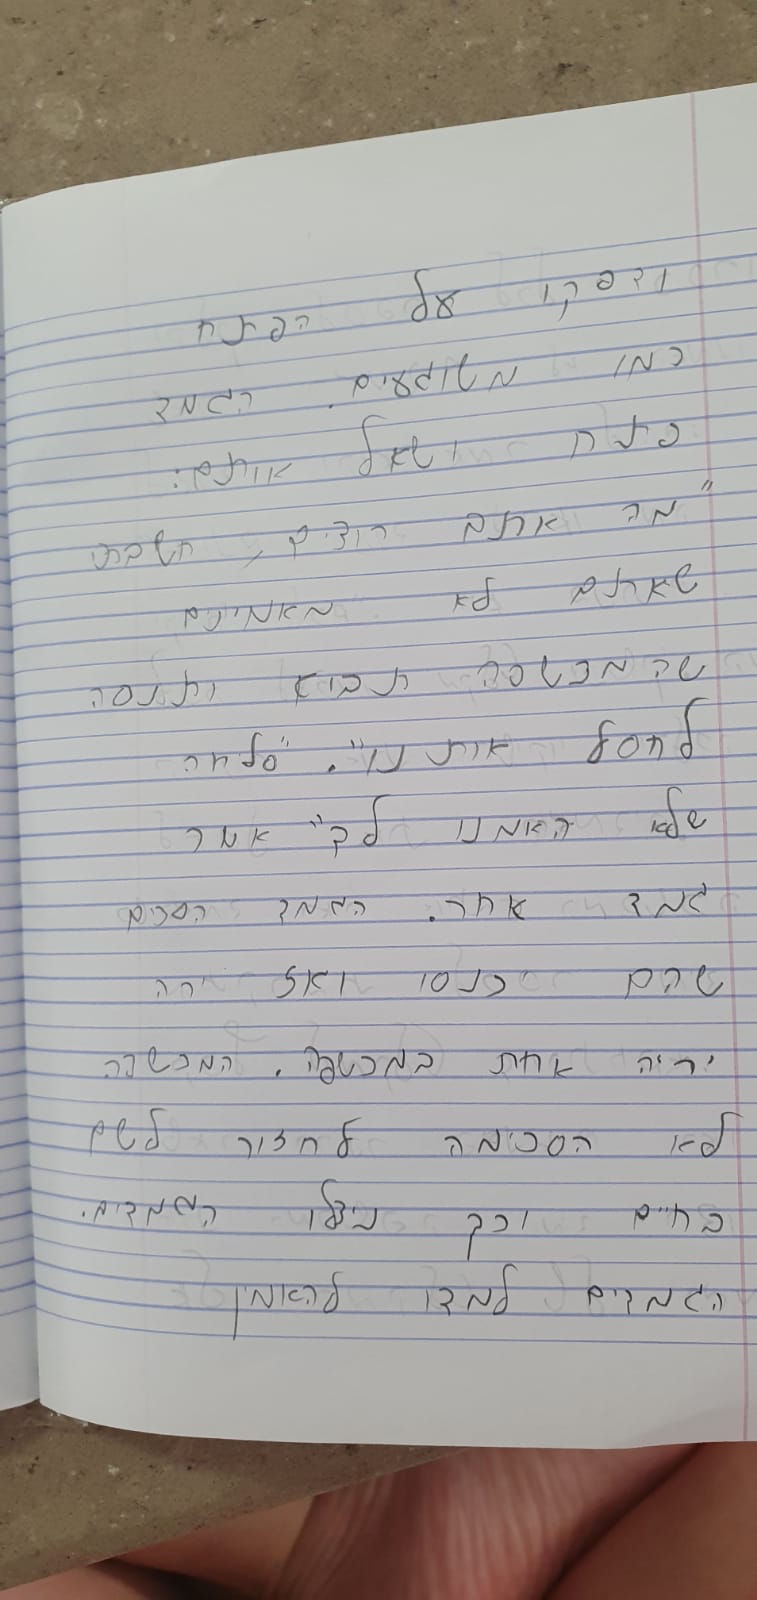 ודפקו על הפתח
כמו משוגעים. הגמד
פתח ושאל אותם:
"מה אתם רוצים, חשבתי
שאתם לא מאמינים
שהמכשפה תבוא ותנסה
לחסל אותנו". "סליחה
שלא האמנו לך" אמר
גמד אחד. הגמד הסכים
שהם יכנסו ואז ירה
יריה אחת במכשפה. המכשפה
לא הסכימה לחזור לשם
בחיים וכך ניצלו הגמדים.
הגמדים למדו להאמין